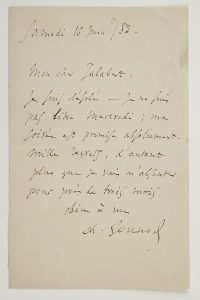 Samedi 16 juin /82.
Mon cher Jalabert,
Je suis désolé — Je ne suis
pas libre Mercredi ; ma
soirée est promise absolument.
mille regrets, d'autant
plus que je vais m'absenter
pour près de trois mois.
à vous
Ch. Gounod